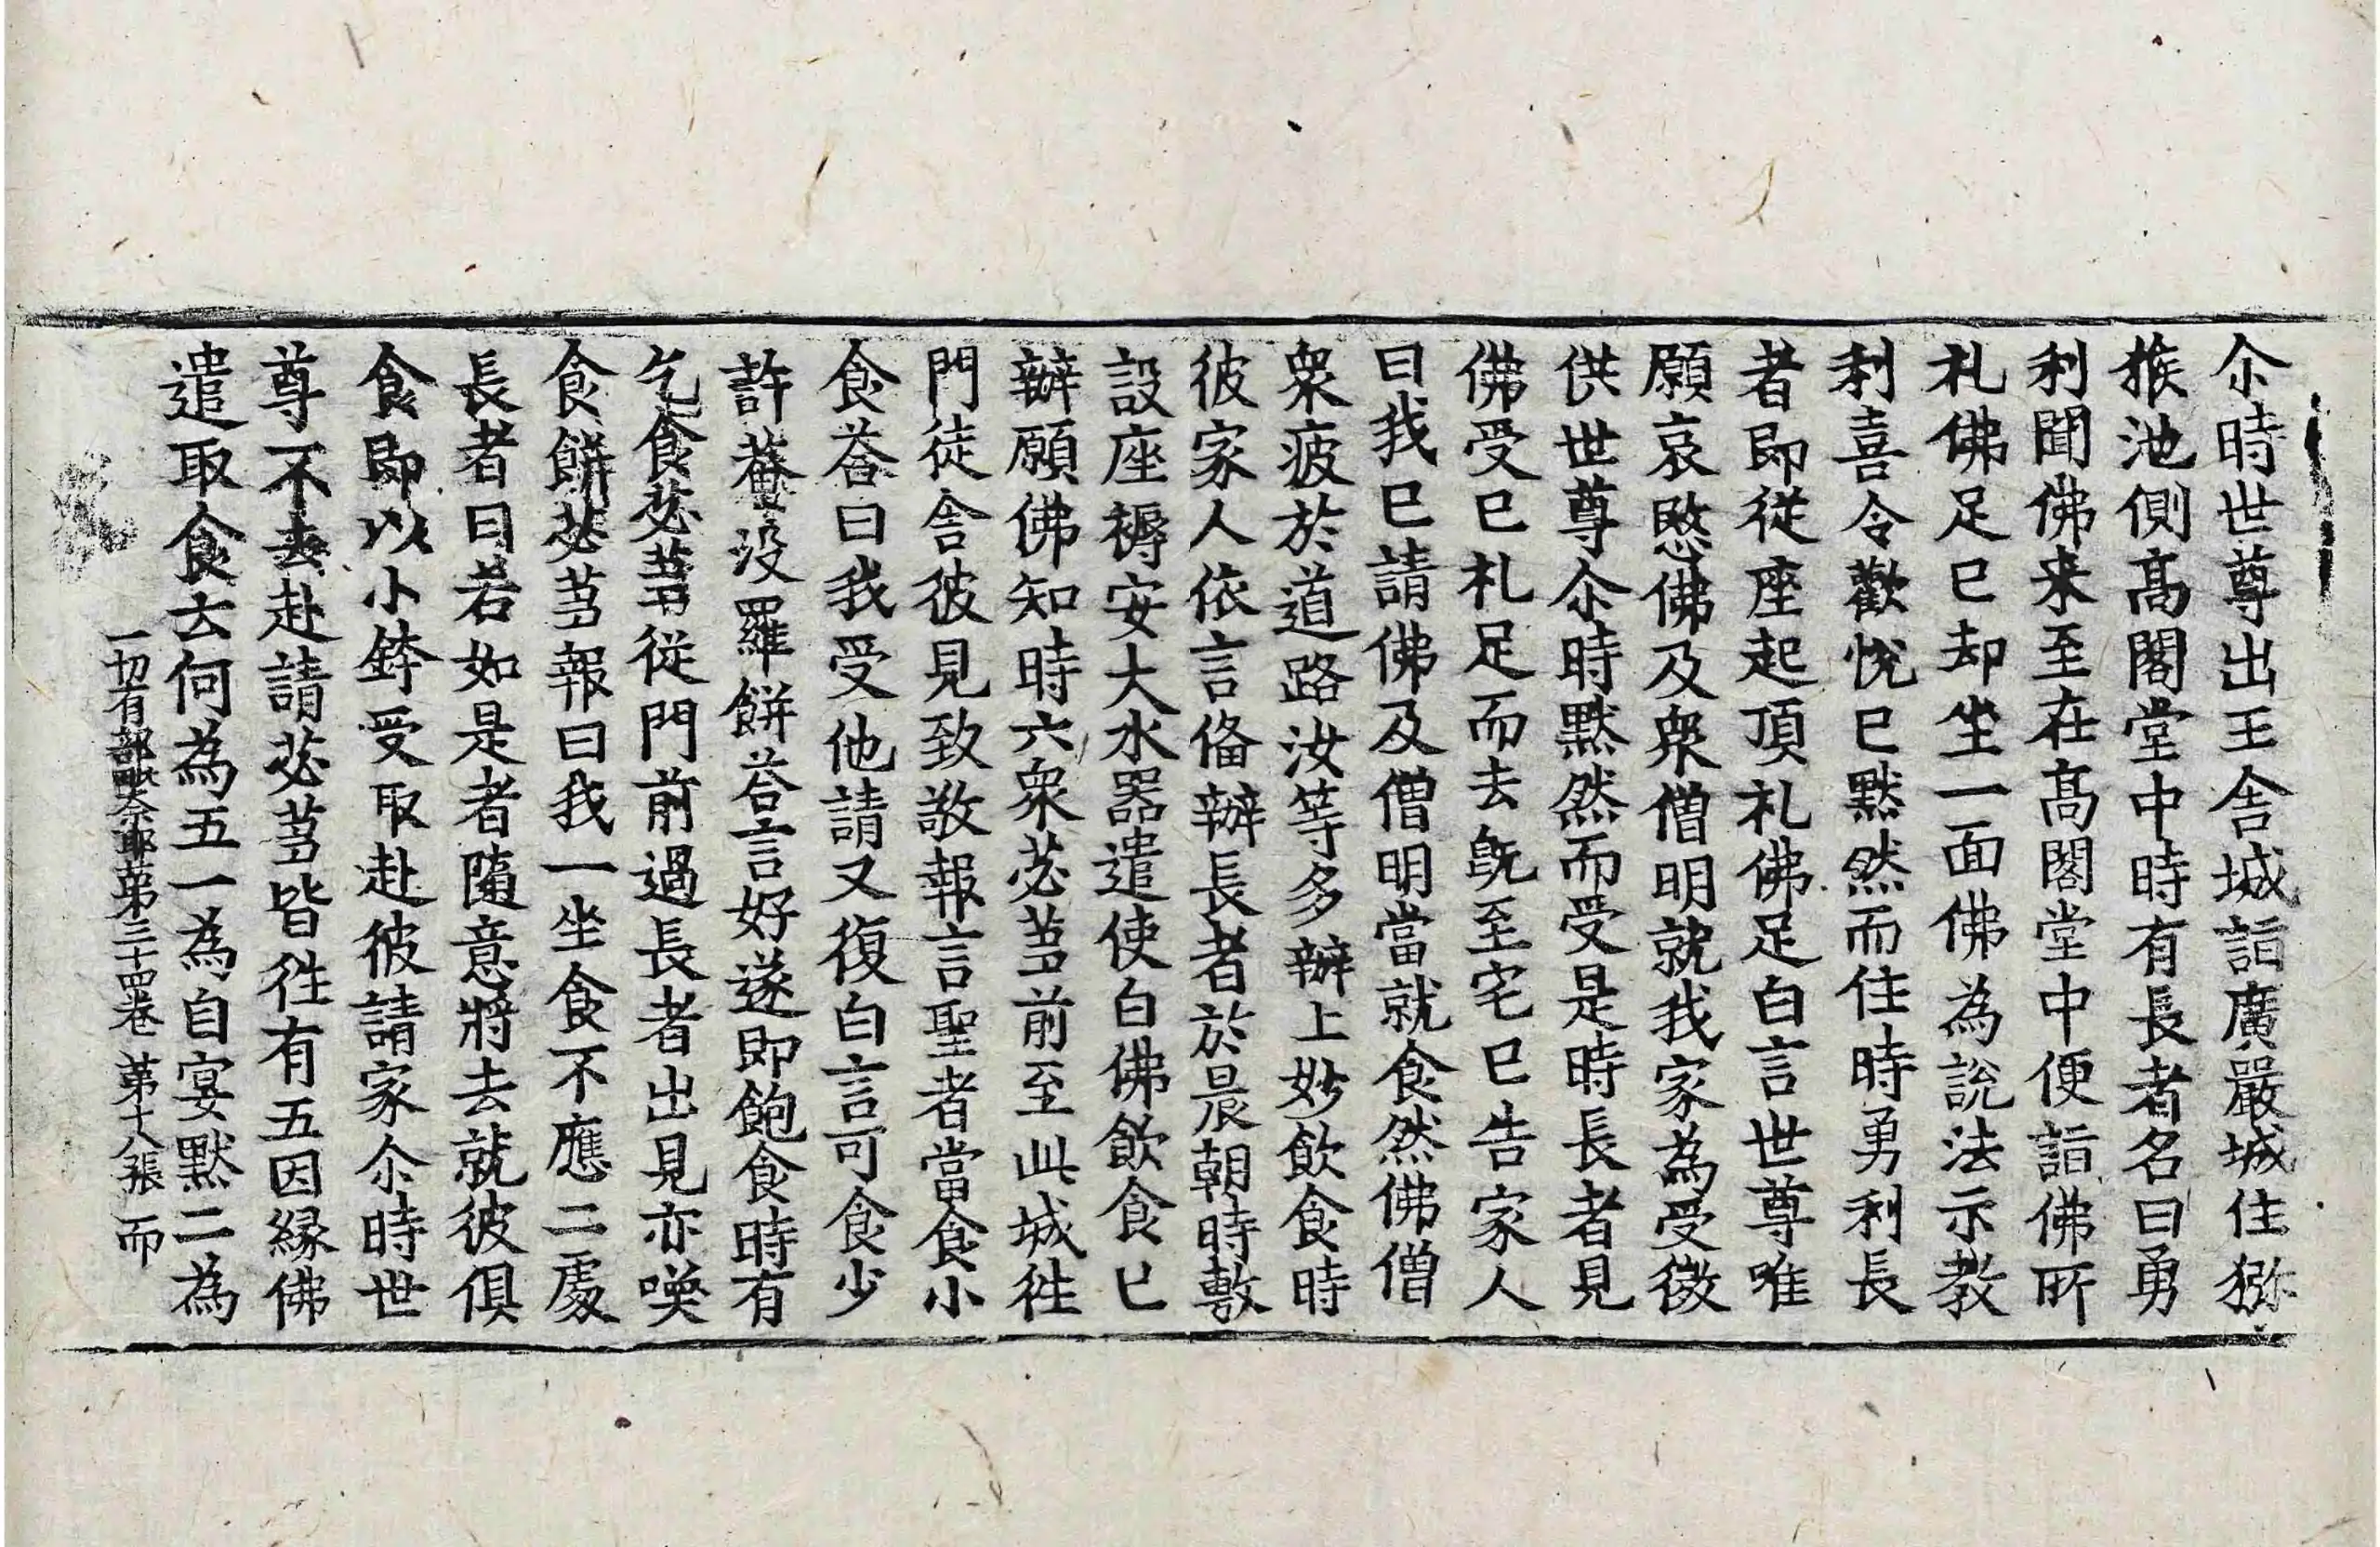 尒時世尊出王舍城詣廣嚴城住獼
猴池側髙閣堂中時有長者名曰勇
利聞佛来至在髙閣堂中便詣佛所
礼佛足已却坐一面佛為說法示教
利喜令歡悅已默然而住時勇利長
者即從座起頂礼佛足白言世尊唯
願哀愍佛及衆僧明就我家為受微
供世尊尒時默然而受是時長者見
佛受已礼足而去旣至宅已告家人
曰我已請佛及僧明當就食然佛僧
衆疲於道路汝等多辦上妙飲食時
彼家人依言俻辦長者於晨朝時敷
設座褥安大水器遣使白佛飲食已
辦願佛知時六衆苾芻前至此城往
門徒舍彼見致敬報言聖者當食小
食荅曰我受他請又復白言可食少
許菴没羅餅荅言好遂即飽食時有
乞食苾芻從門前過長者出見亦喚
食餅苾芻報曰我一坐食不應二處
長者曰若如是者隨意將去就彼俱
食即以小鉢受取赴彼請家尒時世
尊不去赴請苾芻皆往有五因緣佛
遣取食云何為五一為自宴默二為
一切有部毗奈耶第三十四卷 第十八張 而